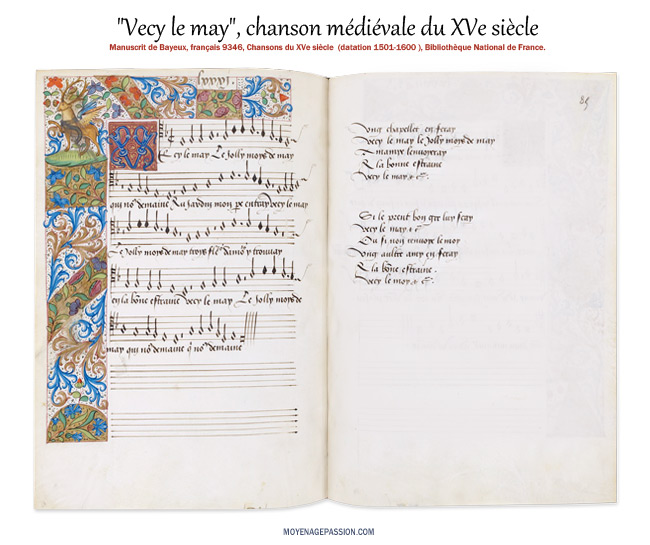 "Vecy le may", chanson médiévale du XVe siècle
Manuscrit de Bayeux, français 9346, Chansons du XVe siècle (datation 1501-1600 ), Bibliothèque National de France.
Vecy le may Le Jolly moys de may
qui no9 demaine Au Jardin mon pe entray vecy le may
Le Jolly moys de may troys fle' damo' y trouvay
en la bone estraine vecy le may Le Jolly moys de
may qui no9 demaine q no9 demaine
85
Ung chapellet en feray
Vecy le may le Jolly moys de may
A mamye lenvoieray
A la bonne estraine
Vecy le may & c.
Si le prent bon gre luy scay
Vecy le may & c
Ou si non renvoye le moy
Ung aultre amy en feray
A la bone estraine.
Vecy le moy & c.
MOYENAGEPASSION.COM